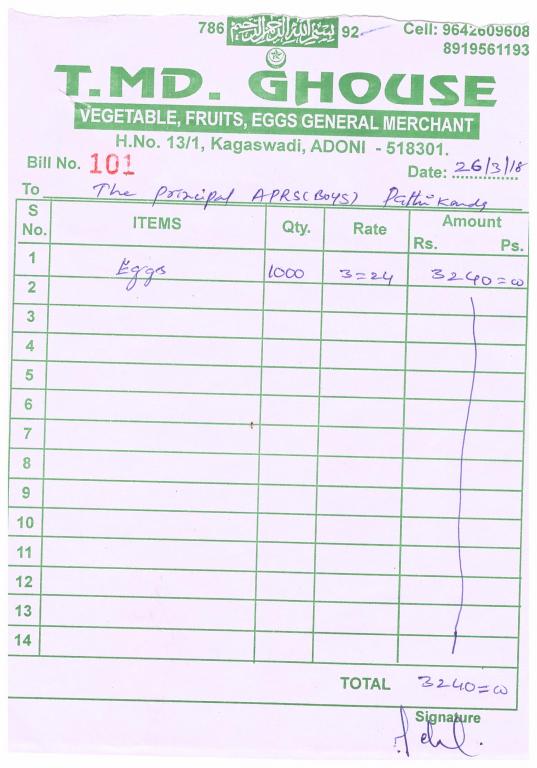 786 بسم الله الرحمن الرحيم 92 Cell: 9642609608
8919561193
T.MD. GHOUSE
VEGETABLE, FRUITS, EGGS GENERAL MERCHANT
H.No. 13/1, Kagaswadi, ADONI - 518301.
Bill No. 101 Date: 26/3/18
To The principal APRS(BOYS) Pathikonda
S No. ITEMS Qty. Rate Amount
Rs. Ps.
1 Eggs 1000 3=24 3240=00
2
3
4
5
6
7
8
9
10
11
12
13
14
TOTAL 3240=00
Signature